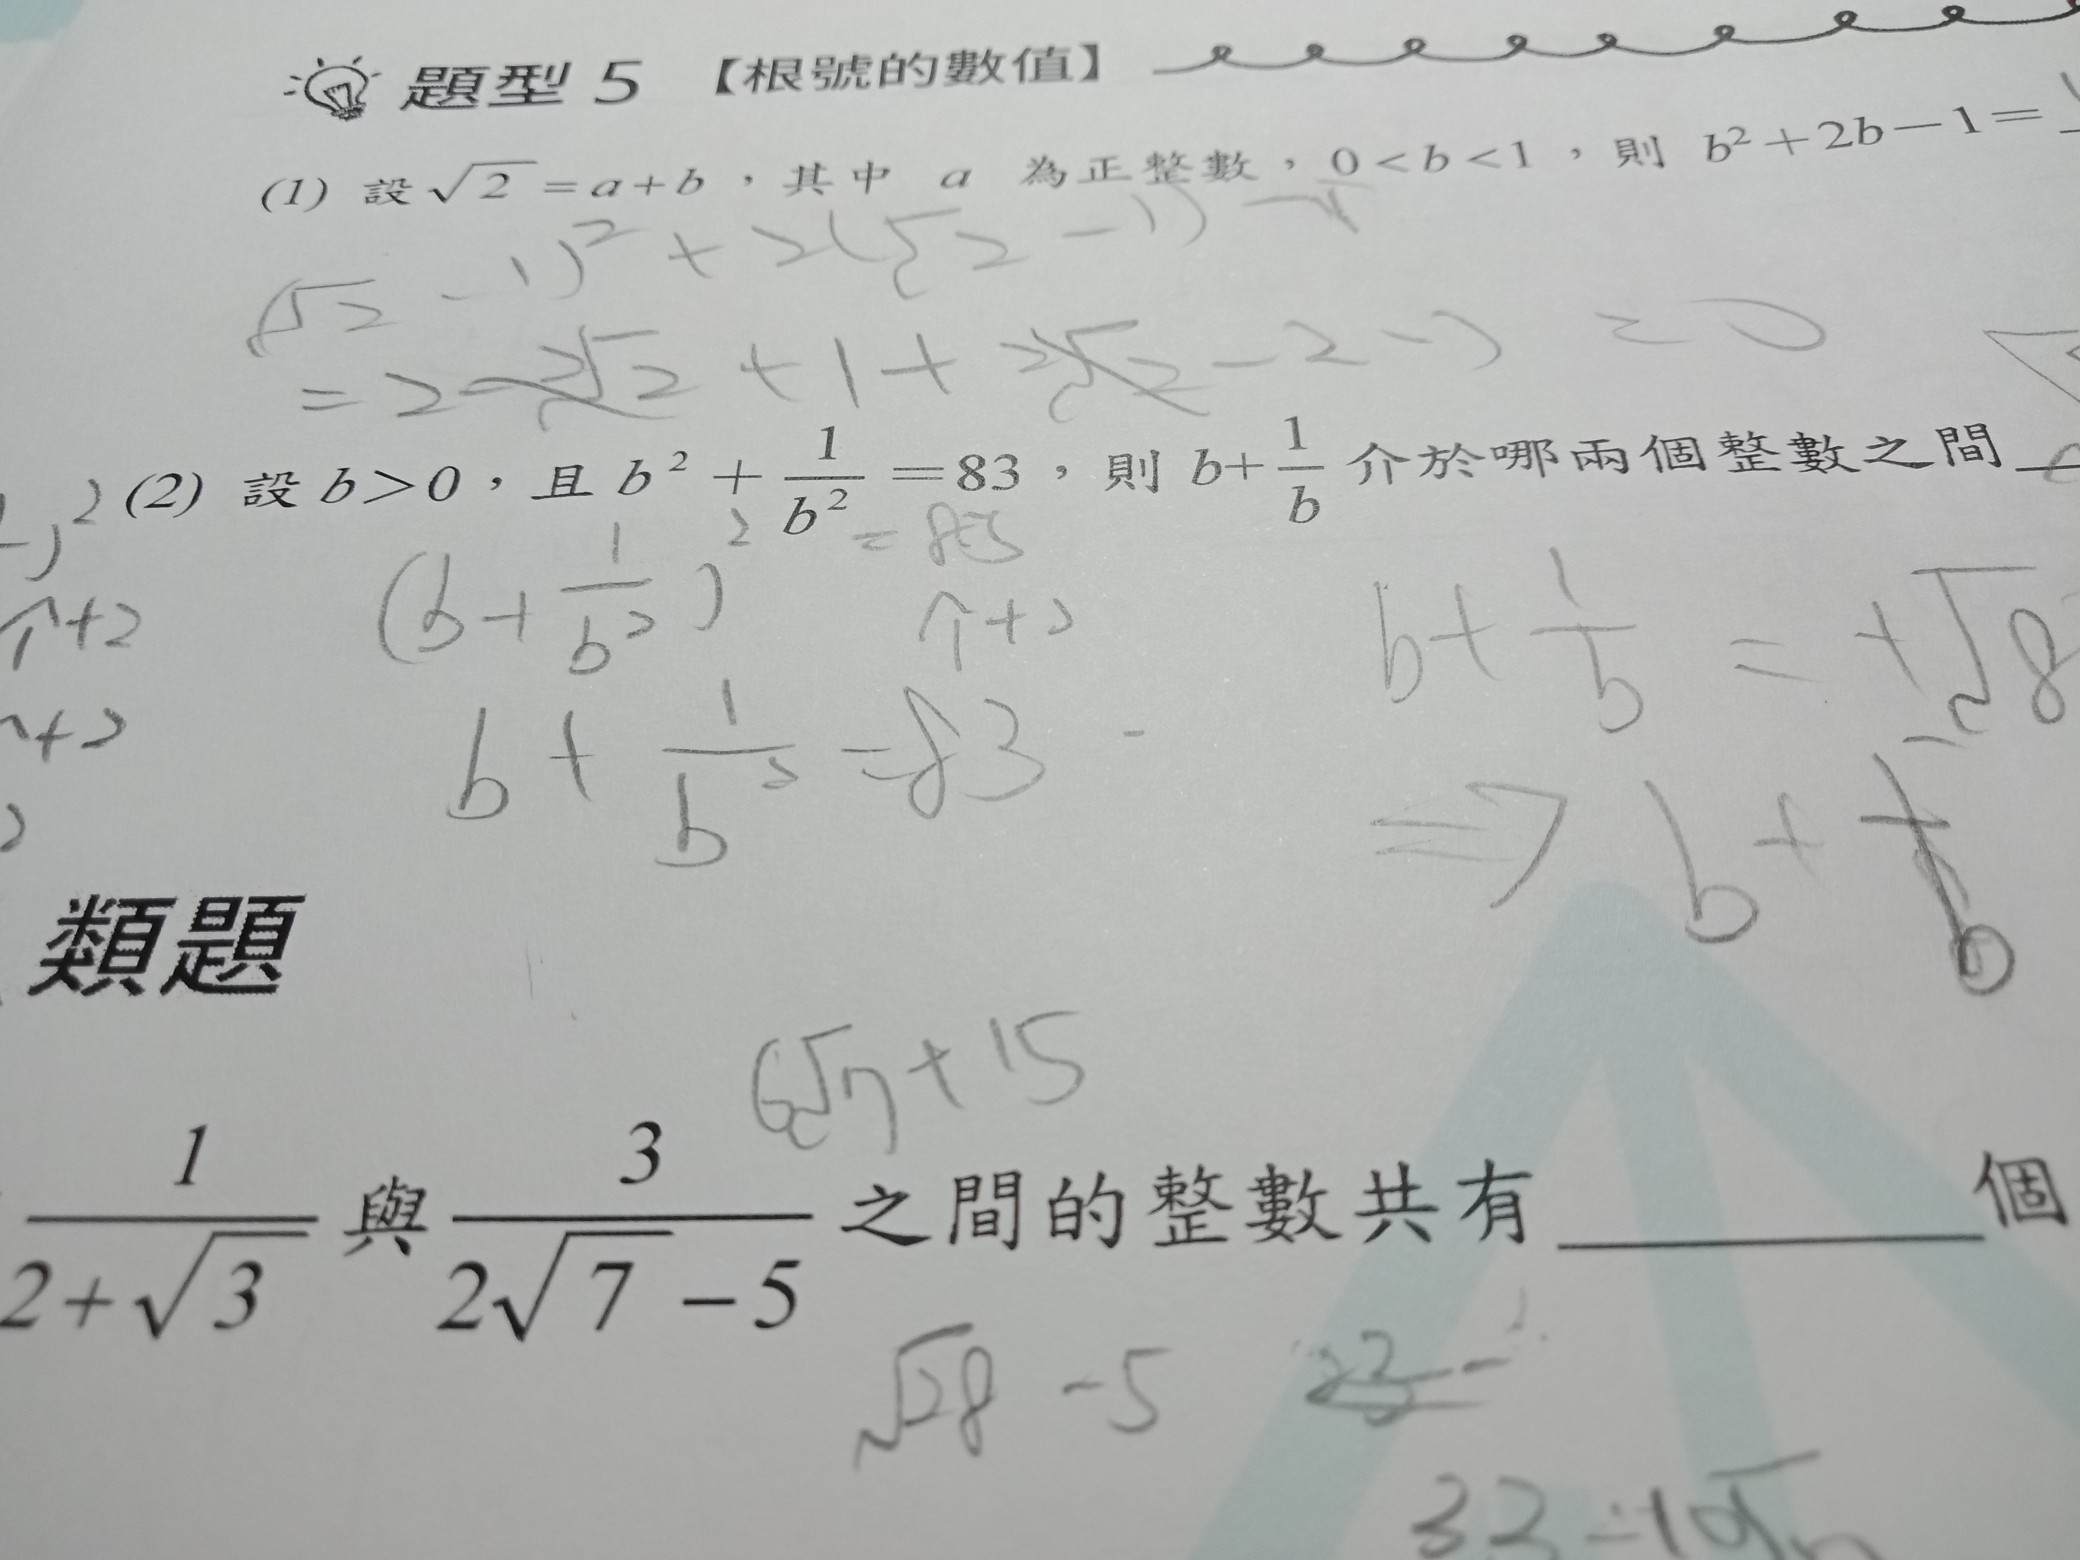 題型 5 【根號的數值】
(1) 設 √2 = a + b ，其中 a 為正整數，0 < b < 1 ，則 b² + 2b − 1 =
(√2 - 1)² + 2(√2 - 1) - 1
= 2 - 2√2 + 1 + 2√2 - 2 - 1 = 0
(2) 設 b > 0 ，且 b² + 1/b² = 83 ，則 b + 1/b 介於哪兩個整數之間
(b + 1/b²)² = 83
+2
+2
b + 1/b = +√8
b + 1/b² = 83
⇒ b + 1/b
類題
6√7 + 15
1/(2 + √3) 與 3/(2√7 − 5) 之間的整數共有 個
√28 - 5